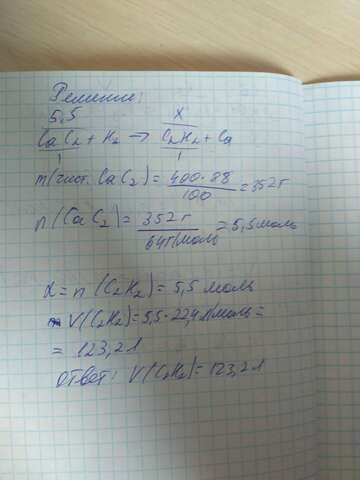 Решение:
5,5 X
CaC₂ + H₂ → C₂H₂ + Ca
1 1
m(чист. CaC₂) = 400·88/100 = 352 г
n(CaC₂) = 352 г/64 г/моль = 5,5 моль
x = n(C₂H₂) = 5,5 моль
V(C₂H₂) = 5,5·22,4 л/моль =
= 123,2 л
Ответ: V(C₂H₂) = 123,2 л